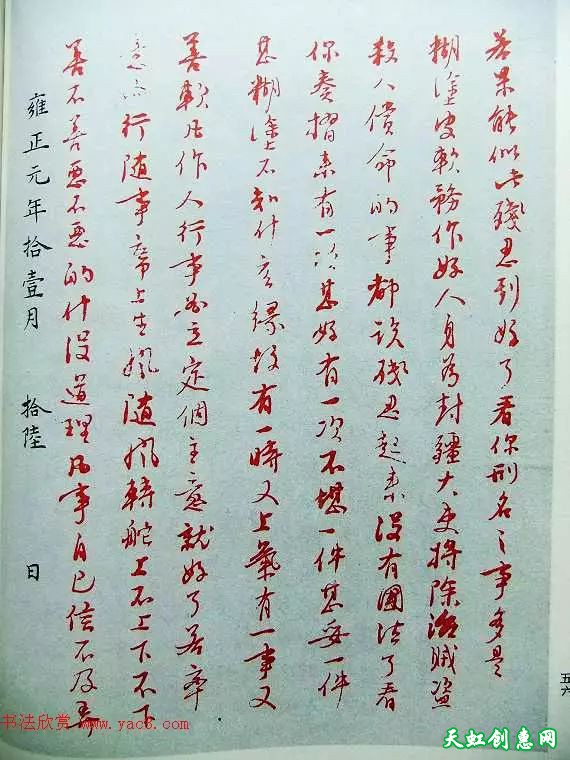 若果能似此殘忍到好了看你刑名之事多是
糊塗皮軟務作好人身為封疆大吏將除治賊盜
殺人償命的事都說殘忍起來沒有國法了看
你奏摺來有一次甚好有一次不堪一件甚妥一件
甚糊塗不知什么緣故有一時又上氣有一事又
善軟凡作人行事必立定個主意就好了若率
意行隨事上生風隨風轉舵上不上下不下
善不善惡不惡的什沒道理凡事自己信不及
雍正元年拾壹月 拾陸 日
五六
书法欣赏 www.yac8.com
天虹创惠网